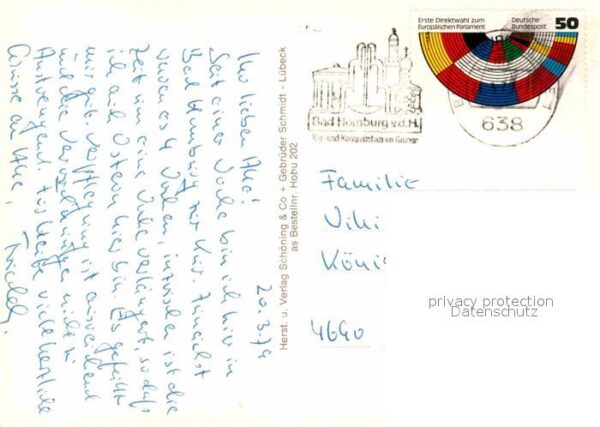 20.3.79
Ihr lieben Alle!
Seit einer Woche bin ich hier in
Bad Homburg zur Kur. Zunächst
waren es 4 Wochen, inzwischen ist die
Zeit um eine Woche verlängert, so daß
ich auf Ostern hier bin. Es gefällt
mir gut. Verpflegung ist ausreichend
und die Anwendungen nicht zu
anstrengend. Für heute viele herzliche
Grüsse an Alle,
Herst. u. Verlag Schöning & Co + Gebrüder Schmidt - Lübeck
as Bestellnr. Hobu 202
Erste Direktwahl zum
Europäischen Parlament
Deutsche
Bundespost
50
Bad Homburg v.d.H.
Kur- und Kongreßstadt im Grünen
638
Familie
Viki
Köni
4640
privacy protection
Datenschutz